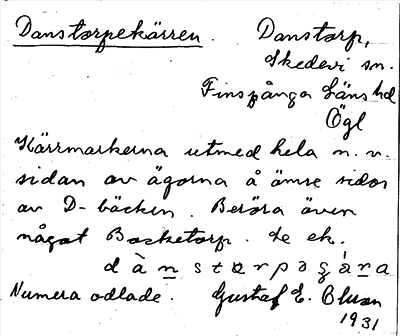 Danstorpekärren. Danstorp,
Skedevi sn.
Finspånga Läns hd
Ögl
Kärrmarkerna utmed hela n. v.
sidan av ägorna å ömse sidor
av D-bäcken. Beröra även
något Backetorp. Se ek.
Numera odlade. Gustaf E.
1931